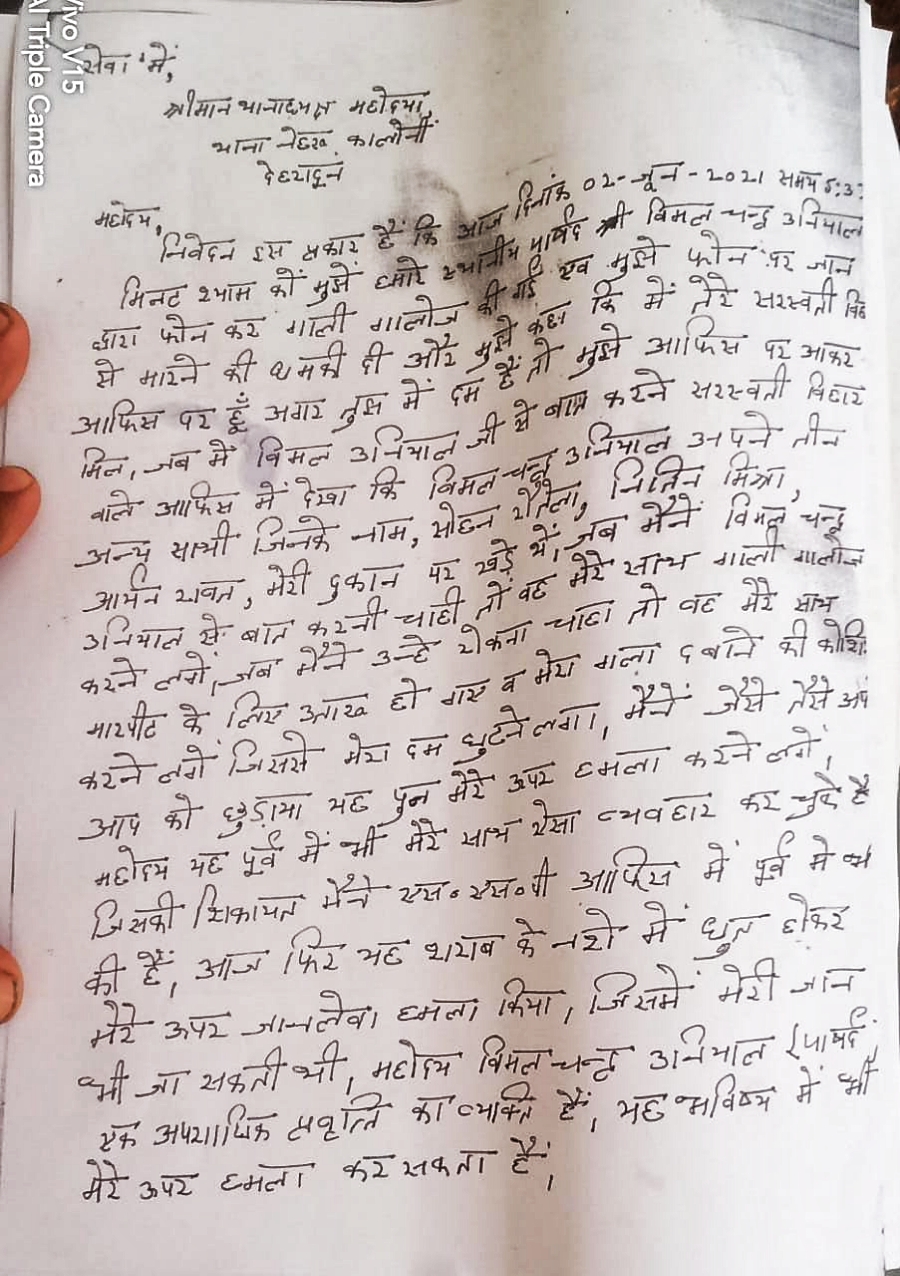 Vivo V15
AI Triple Camera
सेवा में,
श्रीमान थानाध्यक्ष महोदया,
थाना नेहरू कालोनी
देहरादून
महोदय,
निवेदन इस प्रकार हैं कि आज दिनांक 02-जून-2021 समय 5:3
मिनट श्याम कों मुझें हमारे स्थानीय पार्षद श्री विमल चन्द्र उनियाल
द्वारा फोन कर गाली गालोज की गई एव मुझे फोन पर जान
से मारने की धमकी दी और मुझे कहा कि में तेरे सरस्वती विह
आफिस पर हूँ अगर तुझ में दम हैं तो मुझे आफिस पर आकर
मिल, जब में विमल उनियाल जी से बात करने सरस्वती विहार
वाले आफिस में देखा कि विमल चन्द्र उनियाल अपने तीन
अन्य साथी जिनके नाम, मोहन रौतेला, नितिन मिश्रा,
आर्यन रावत, मेरी दुकान पर खड़े थें, जब मैनें विमल चन्द्र
उनियाल से बात करनी चाही तों वह मेरे साथ गाली गालोज
करने लगें, जब मैनें उन्हे रोकना चाहा तो वह मेरे साथ
मारपीट के लिए उतारू हो गए व मेरा गला दबाने की कोशि
करने लगें जिससे मेरा दम घुटने लगा, मैनें जैसे तैसे अप
आप को छुड़ाया यह पुन मेरे ऊपर हमला करने लगें,
महोदय यह पूर्व में भी मेरे साथ ऐसा व्यवहार कर चुके है
जिसकी शिकायत मैनें एस॰एस॰पी आफिस में पूर्व मे भ
की हैं, आज फिर यह शराब के नशे में धुत होकर
मेरे ऊपर जानलेवा हमला किया, जिसमें मेरी जान
भी जा सकती थी, महोदय विमल चन्द्र उनियाल (पार्षद)
एक अपराधिक प्रवृत्ति का व्यक्ति हैं, यह भविष्य में भी
मेरे ऊपर हमला कर सकता हैं,